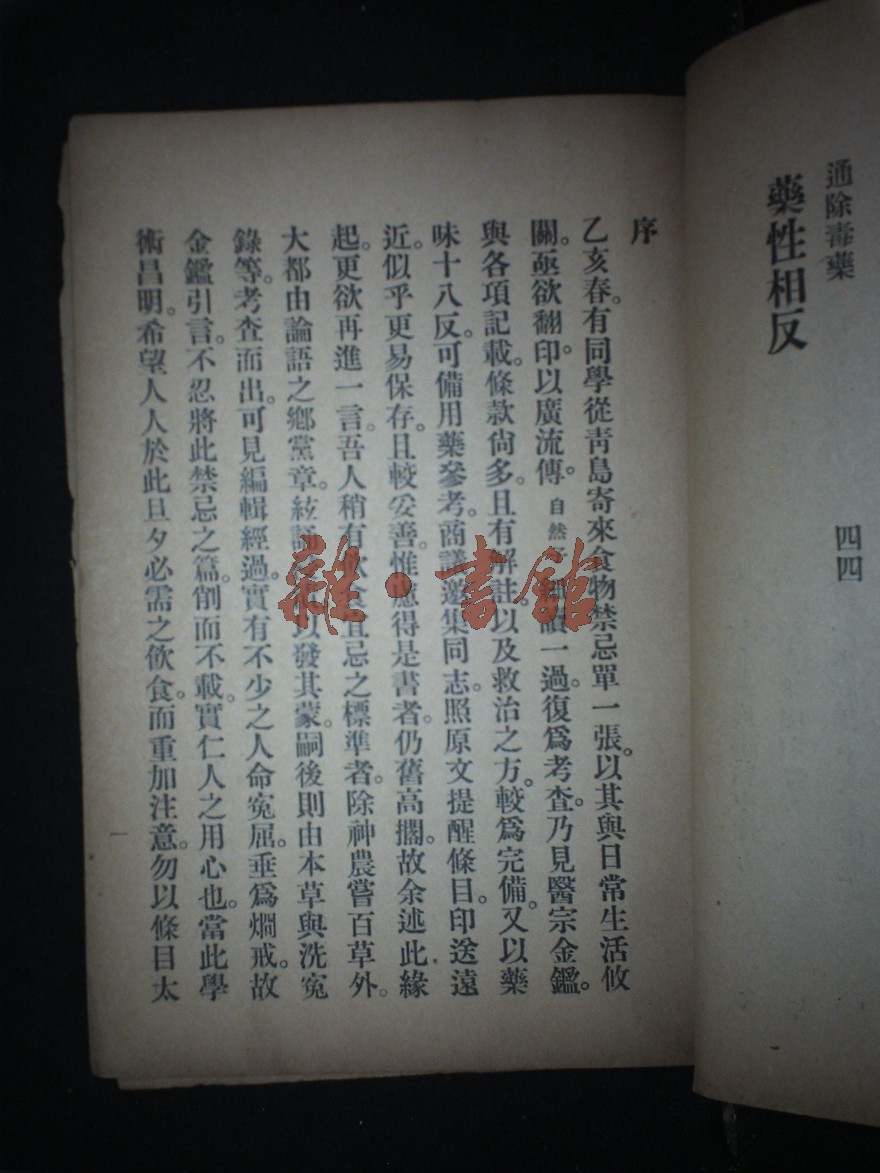 通除毒藥
藥性相反
四四
序
乙亥春。有同學從靑島寄來食物禁忌單一張。以其與日常生活攸
關。亟欲翻印。以廣流傳。自然一過。復爲考查。乃見醫宗金鑑。
與各項記載。條款尙多。且有解註。以及救治之方。較爲完備。又以藥
味十八反。可備用藥參考。商議邀集同志。照原文提醒條目。印送遠
近。似乎更易保存。且較妥善。惟應得是書者。仍舊高擱。故余述此緣
起。更欲再進一言。吾人稍有飮食宜忌之標準者。除神農嘗百草外。
大都由論語之鄉黨章。絃誦以發其蒙。嗣後則由本草與洗寃
錄等。考查而出。可見編輯經過。實有不少之人命寃屈。垂爲烱戒。故
金鑑引言。不忍將此禁忌之篇。削而不載。實仁人之用心也。當此學
術昌明。希望人人於此旦夕必需之飮食。而重加注意。勿以條目太
一
雜·書館